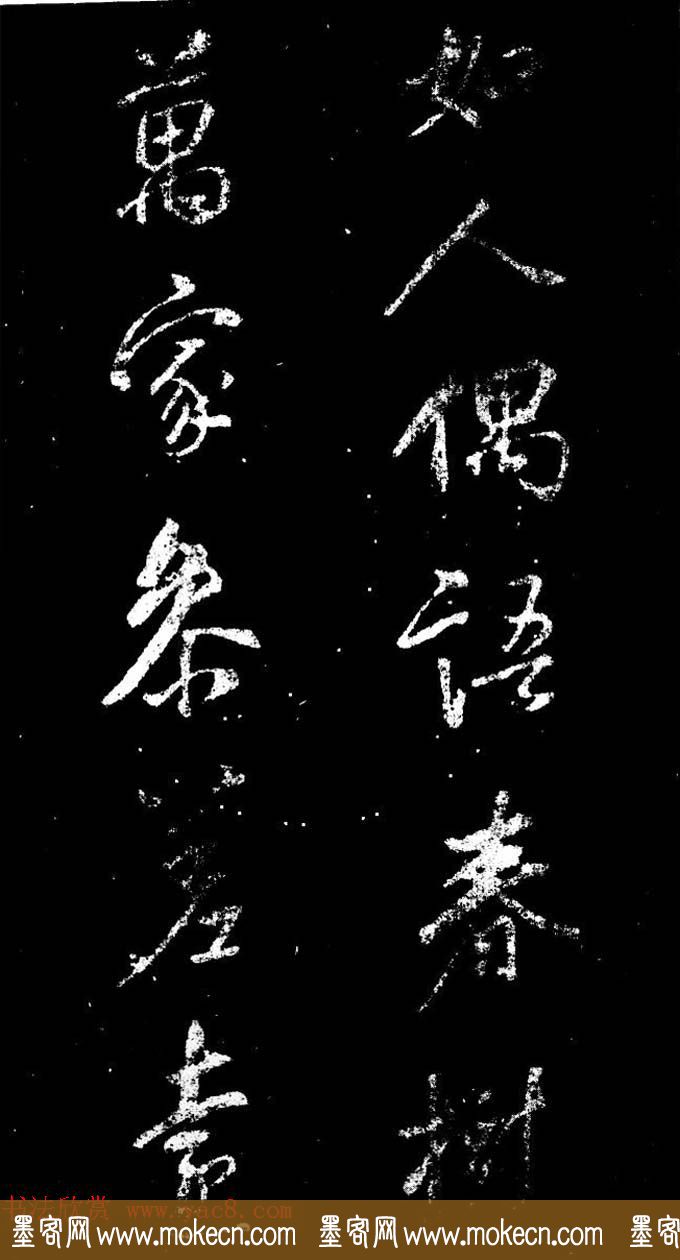 如人偶語春樹
萬家參差素
书法欣赏 www.yac8.com
墨客网 www.mokecn.com 墨客网 www.mokecn.com 墨客网